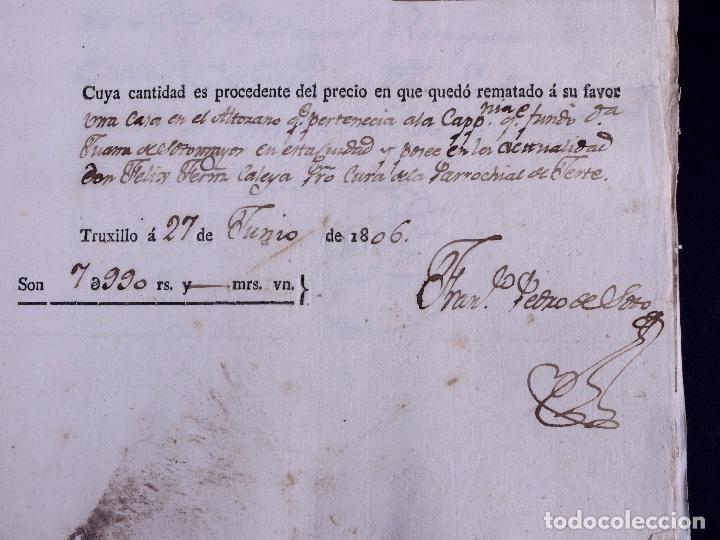 Cuya cantidad es procedente del precio en que quedó rematado á su favor
una Casa en el Altozano q.e pertenecia ala Capp.nia q.e fundó D.a
Juana de Sotomayor en esta Ciudad y posee en la actualidad
Don Felix Fern.z Caleya Pro Cura de la Parrochial de Jerte.
Truxillo á 27 de Junio de 1806.
Son 7Ə990 rs. y — mrs. vn.}
Fran.co Pedro de Soto
todocoleccion